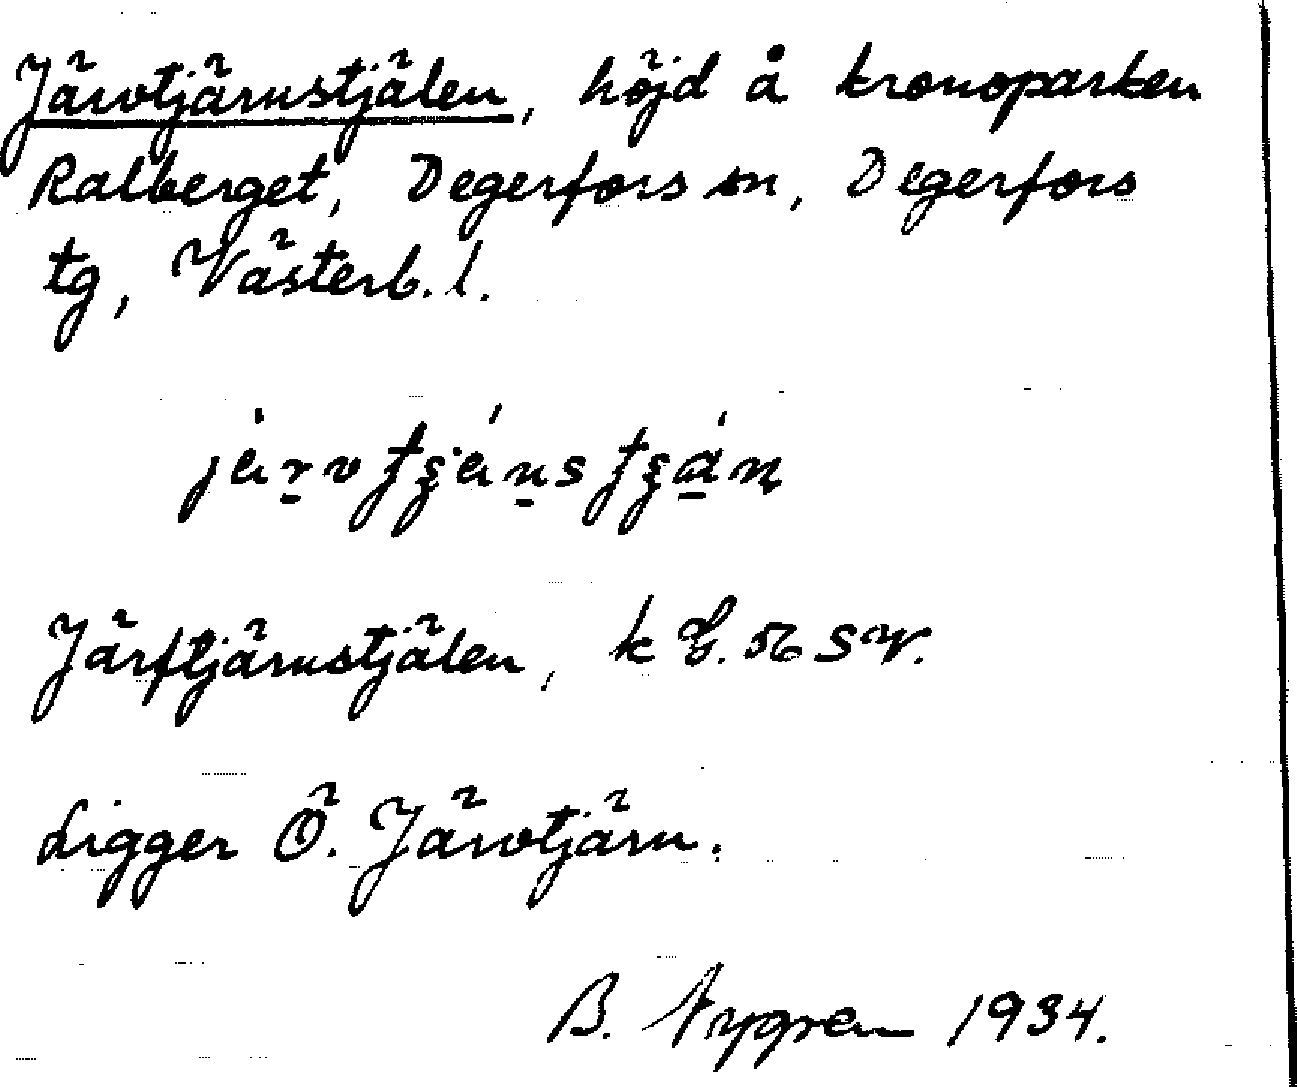 Järvtjärnstjälen, höjd å kronoparken
Ralberget, Degerfors sn, Degerfors
tg, Västerb. l.
Järftjärnstjälen, k G. 56 SV.
Ligger Ö. Järvtjärn.
B. Nygren 1934.